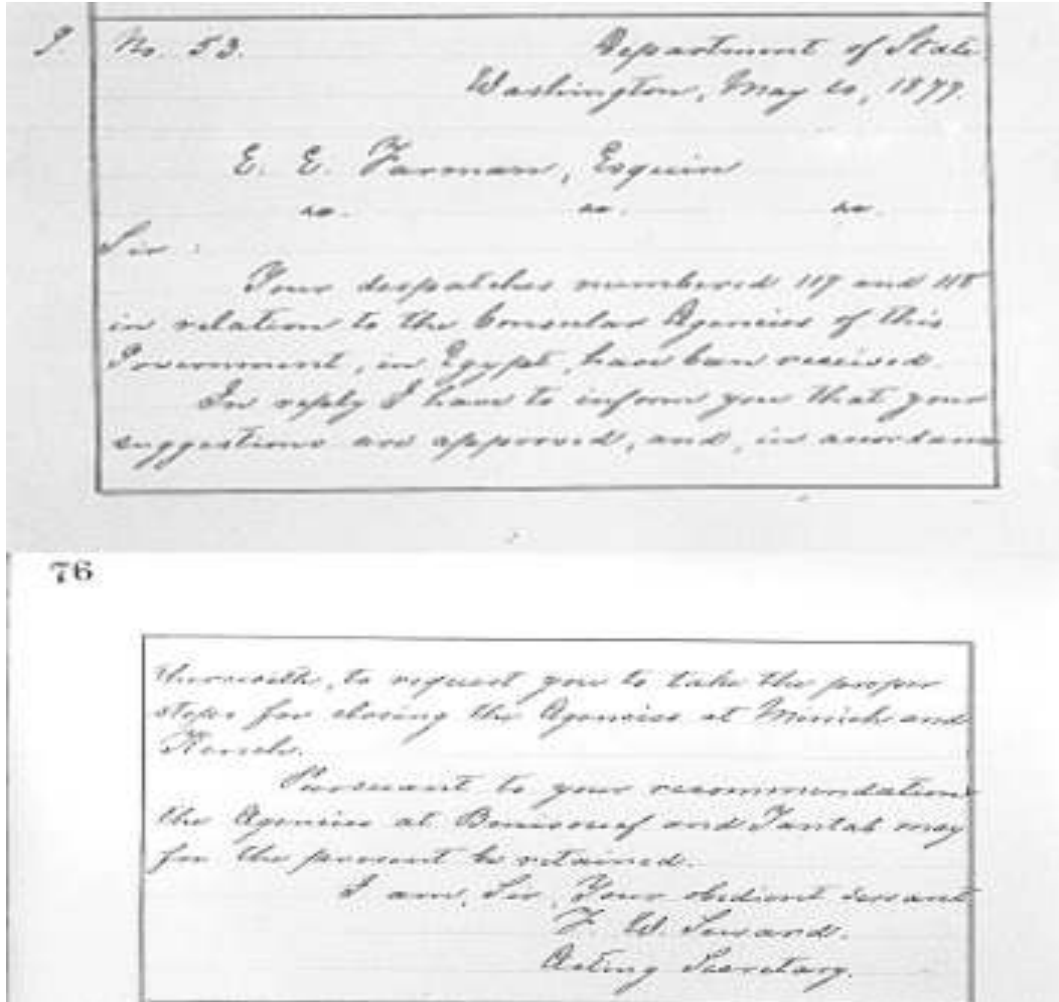 No. 53. Department of State
Washington, May 10, 1877.
E. E. Farman, Esquire
&c. &c. &c.
Sir:
Your despatches numbered 117 and 118
in relation to the Consular Agencies of this
Government, in Egypt, have been received.
In reply I have to inform you that your
suggestions are approved, and, in accordance
76
therewith, to request you to take the proper
steps for closing the Agencies at Minieh and
Keneh.
Pursuant to your recommendation
the Agencies at Benisouef and Tantah may
for the present be retained.
I am, Sir, Your obedient servant
F. W. Seward.
Acting Secretary.